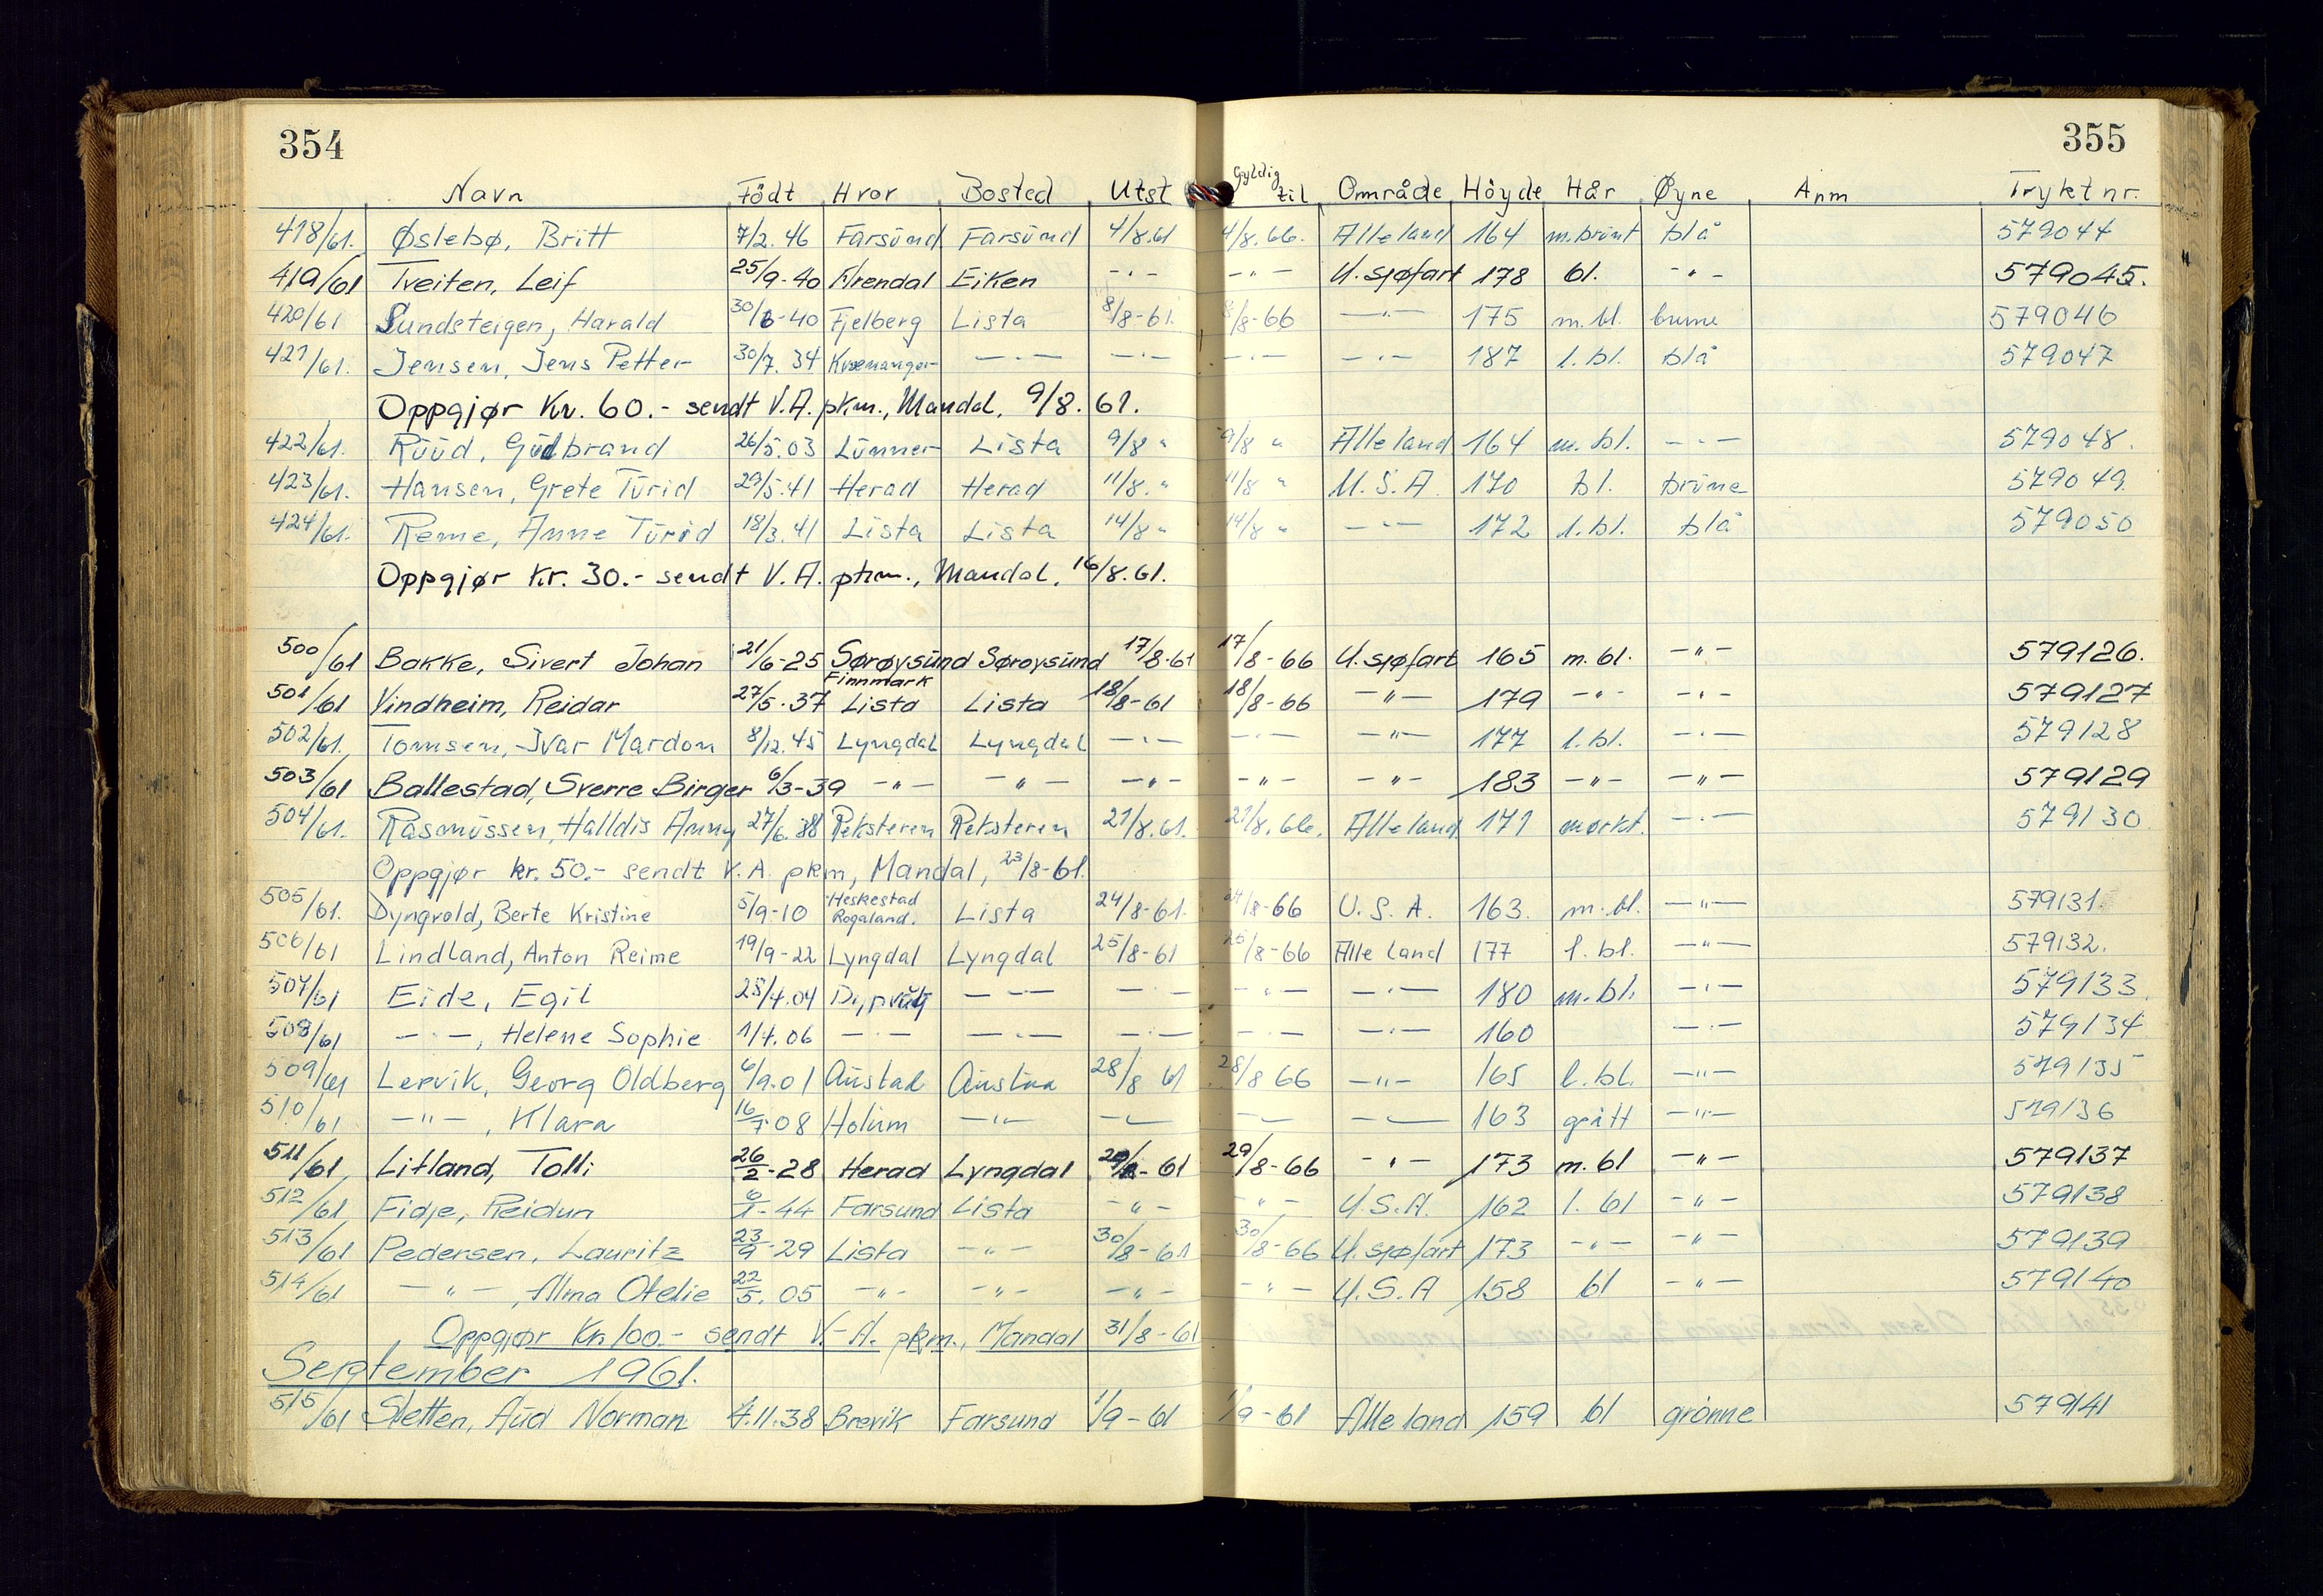 354 355
Navn Födt Hvor Bosted Utst Gyldig til Område Höyde Hår Øyne Anm Trykt nr.
418/61. Øslebø, Britt 7/2.46 Farsund Farsund 4/8.61 4/8.66. Alle land 164 m.brunt blå 579044
419/61 Tveiten, Leif 25/9-40 Arendal Eiken -"- -"- U.sjøfart 178 bl. -"- 579045.
420/61 Sundsteigen, Harald 30/6-40 Fjelberg Lista 8/8-61. 8/8-66 -"- 175 m.bl. brune 579046
421/61. Jensen, Jens Petter 30/7.34 Kvænanger -"- -"- -"- -"- 187 l.bl. blå 579047
Oppgjør Kr. 60.- sendt V.A. pkm., Mandal, 9/8.61.
422/61. Ruud, Gulbrand 26/5.03 Lunner Lista 9/8 " 9/8 " Alle land 164 m.bl. -"- 579048.
423/61. Hansen, Grete Turid 29/5.41 Herad Herad 11/8. " 11/8 " U.S.A. 170 bl. brune 579049.
424/61. Reme, Anne Turid 18/3.41 Lista Lista 14/8 " 14/8 " -"- 172 l.bl. blå 579050
Oppgjør kr. 30.- sendt V.A. pkm., Mandal, 16/8.61.
500/61 Bakke, Sivert Johan 21/6-25 Sørøysund Finnmark Sørøysund 17/8-61 17/8-66 U.sjøfart 165 m.bl. -"- 579126.
501/61 Vindheim, Reidar 27/5.37 Lista Lista 18/8-61 18/8-66 -"- 179 -"- -"- 579127
502/61. Tomsen, Ivar Mardon 8/12.45 Lyngdal Lyngdal -"- -"- -"- 177 l.bl. -"- 579128
503/61 Ballestad, Sverre Birger 6/3-39 -"- -"- -"- -"- -"- 183 -"- -"- 579129
504/61. Rasmussen, Halldis Anny 27/6.38 Reksteren Reksteren 21/8.61. 21/8.66. Alle land 171 mørkt. -"- 579130
Oppgjør kr. 50.- sendt V.A. pkm, Mandal, 23/8-61.
505/61. Dyngvold, Berte Kristine 5/9-10 Heskestad Rogaland. Lista 24/8-61. 24/8-66 U.S.A. 163. m.bl. -"- 579131.
506/61 Lindland, Anton Reime 19/9-22 Lyngdal Lyngdal 25/8-61 25/8-66 Alle land 177 l.bl. -"- 579132.
507/61 Eide, Egil 25/4.04 -"- -"- -"- -"- 180 m.bl. -"- 579133.
508/61 -"-, Helene Sophie 1/4.06 -"- -"- -"- -"- -"- 160 -"- 579134
509/61 Lervik, Georg Oldberg 6/9.01 Austad Austad 28/8 61 28/8 66 -"- 165 l.bl. -"- 579135
510/61 -"-, Klara 16/7.08 Holum -"- -"- -"- -"- 163 grått -"- 579136
511/61 Litland, Tolli 26/2-28 Herad Lyngdal 29/8-61 29/8-66 -"- 173 m.bl -"- 579137
512/61 Fidje, Reidun 6/1-44 Farsund Lista -"- -"- U.S.A. 162 l.bl -"- 579138
513/61 Pedersen, Lauritz 23/9-29 Lista -"- 30/8-61 30/8-66 U.sjøfart 173 -"- -"- 579139
514/61 -"-, Alma Otelie 22/5.05 -"- -"- -"- -"- U.S.A 158 bl -"- 579140
Oppgjør Kr. 100.- sendt V.-A. pkm., Mandal 31/8-61
September 1961.
515/61 Sletten, Aud Norman 4.11.38 Brevik Farsund 1/9-61 1/9-61 Alle land 159 bl grønne 579141